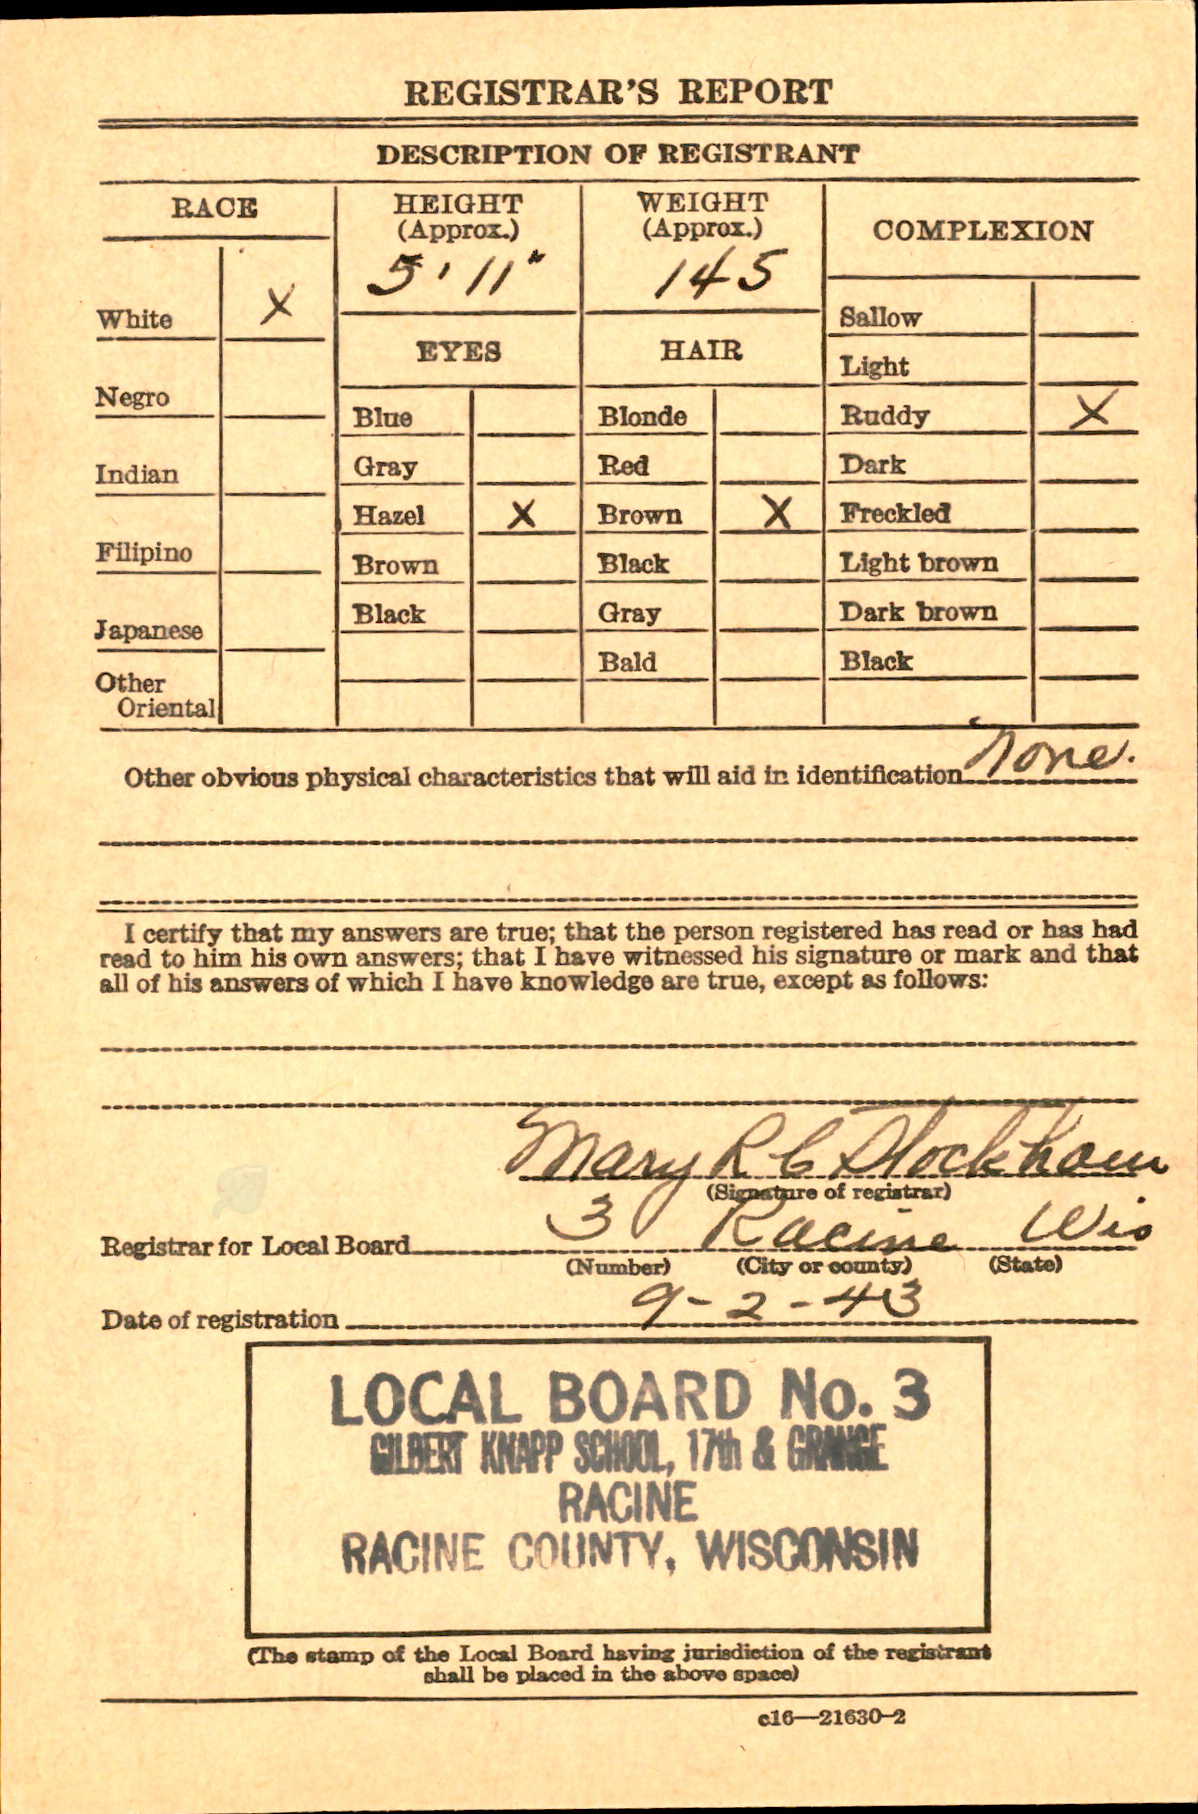 REGISTRAR'S REPORT
DESCRIPTION OF REGISTRANT
RACE
White X
Negro
Indian
Filipino
Japanese
Other
Oriental
HEIGHT
(Approx.)
5' 11"
WEIGHT
(Approx.)
145
EYES
Blue
Gray
Hazel X
Brown
Black
HAIR
Blonde
Red
Brown X
Black
Gray
Bald
COMPLEXION
Sallow
Light
Ruddy X
Dark
Freckled
Light brown
Dark brown
Black
Other obvious physical characteristics that will aid in identification None.
I certify that my answers are true; that the person registered has read or has had
read to him his own answers; that I have witnessed his signature or mark and that
all of his answers of which I have knowledge are true, except as follows:
Mary R C Stockham
(Signature of registrar)
Registrar for Local Board 3 Racine Wis
(Number) (City or county) (State)
Date of registration 9-2-43
LOCAL BOARD No. 3
GILBERT KNAPP SCHOOL, 17th & GRANGE
RACINE
RACINE COUNTY, WISCONSIN
(The stamp of the Local Board having jurisdiction of the registrant
shall be placed in the above space)
c16—21630-2